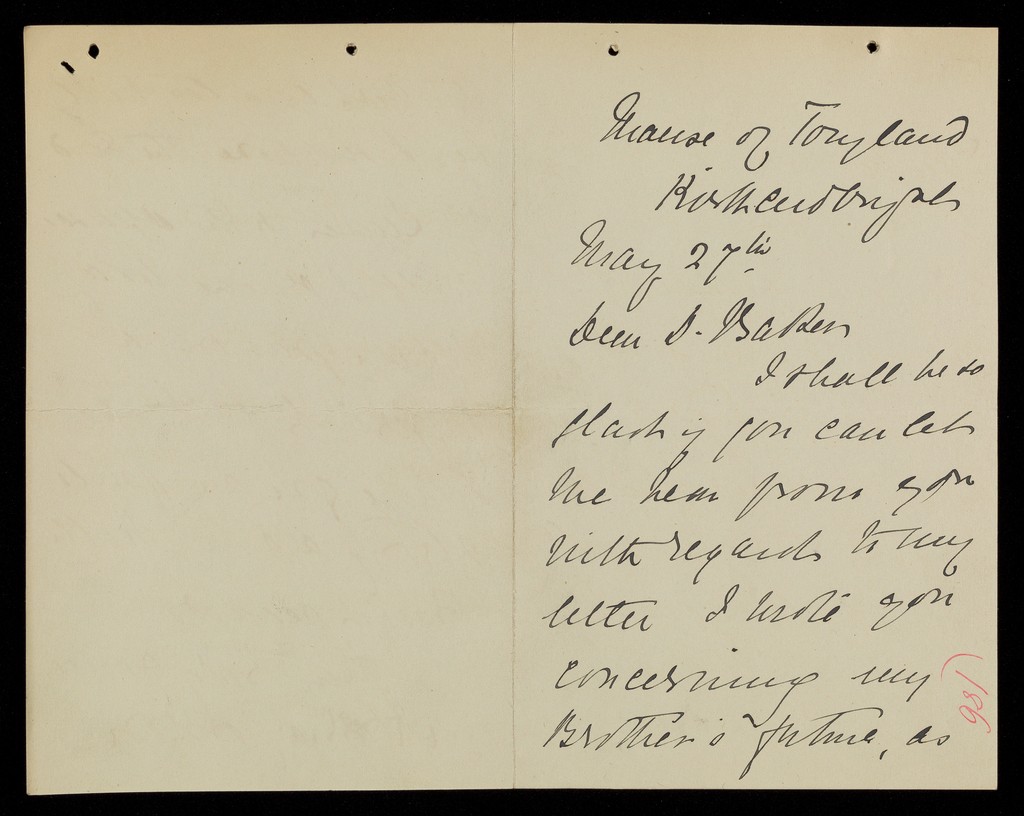 Manse of Tongland
Kirkcudbright
May 27th
Dear D. Baker
I shall be so
glad if you can let
me hear from you
with regards to my
letter I wrote you
concerning my
Brother's future, as